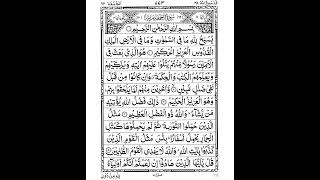 سُوْرَةُ الْجُمُعَةِ مَدَنِيَّةٌ
بِسْمِ اللهِ الرَّحْمٰنِ الرَّحِيْمِ
يُسَبِّحُ لِلهِ مَا فِي السَّمٰوٰتِ وَمَا فِي الْاَرْضِ الْمَلِكِ
الْقُدُّوْسِ الْعَزِيْزِ الْحَكِيْمِ هُوَ الَّذِيْ بَعَثَ فِي
الْاُمِّيّٖنَ رَسُوْلًا مِّنْهُمْ يَتْلُوْا عَلَيْهِمْ اٰيٰتِهٖ وَيُزَكِّيْهِمْ
وَيُعَلِّمُهُمُ الْكِتٰبَ وَالْحِكْمَةَ وَاِنْ كَانُوْا مِنْ قَبْلُ
لَفِيْ ضَلٰلٍ مُّبِيْنٍ وَّاٰخَرِيْنَ مِنْهُمْ لَمَّا يَلْحَقُوْا بِهِمْ
وَهُوَ الْعَزِيْزُ الْحَكِيْمُ ذٰلِكَ فَضْلُ اللهِ يُؤْتِيْهِ
مَنْ يَّشَآءُ وَاللهُ ذُو الْفَضْلِ الْعَظِيْمِ مَثَلُ
الَّذِيْنَ حُمِّلُوا التَّوْرٰىةَ ثُمَّ لَمْ يَحْمِلُوْهَا كَمَثَلِ
الْحِمَارِ يَحْمِلُ اَسْفَارًا بِئْسَ مَثَلُ الْقَوْمِ الَّذِيْنَ
كَذَّبُوْا بِاٰيٰتِ اللهِ وَاللهُ لَا يَهْدِي الْقَوْمَ الظّٰلِمِيْنَ
قُلْ يٰٓاَيُّهَا الَّذِيْنَ هَادُوْٓا اِنْ زَعَمْتُمْ اَنَّكُمْ اَوْلِيَآءُ